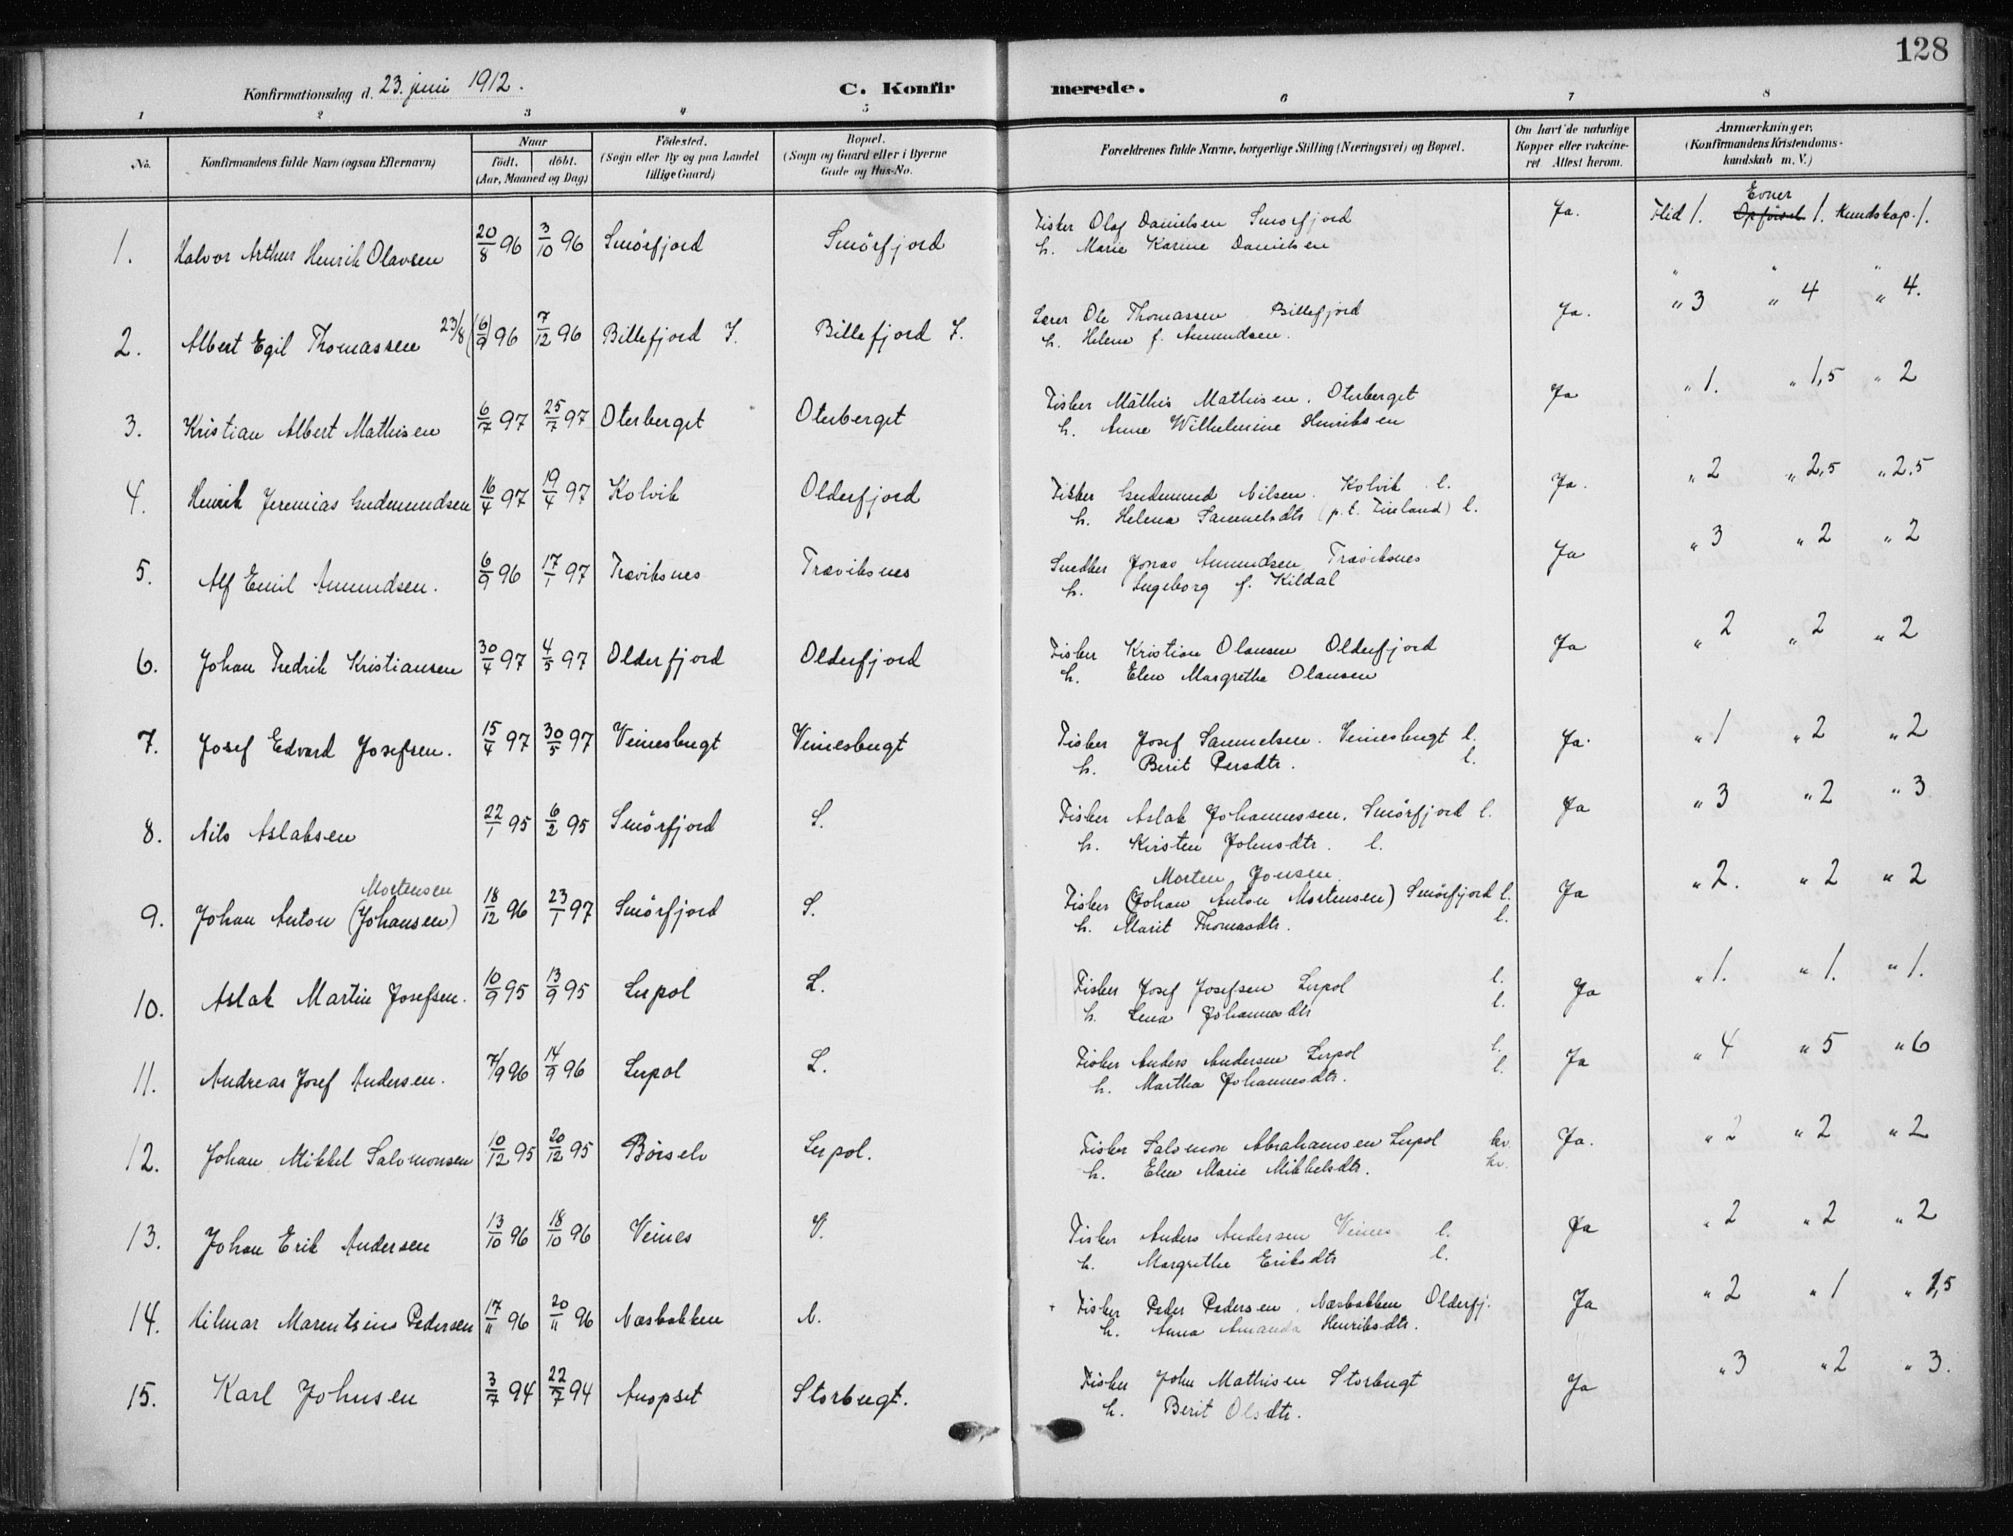 128
Konfirmationsdag d. 23. juni 1912.
C. Konfirmerede.
1 2 3 4 5 6 7 8
No. Konfirmandens fulde Navn (ogsaa Efternavn) Naar födt. döbt. (Aar, Maaned og Dag) Födested. (Sogn eller By og paa Landet tillige Gaard) Bopæl. (Sogn og Gaard eller i Byerne Gade og Hus-No. Forældrenes fulde Navne, borgerlige Stilling (Næringsvei) og Bopæl. Om havt de naturlige Kopper eller vakcineret Attest herom. Anmærkninger. (Konfirmandens Kristendomskundskab m. V.)
Evner
1. Halvor Arthur Henrik Olavsen 20/8 96 3/10 96 Smörfjord Smörfjord Fisker Olaf Danielsen Smörfjord Ja. Flid 1. Opförsel 1. Kundskap. 1.
h. Marie Karine Danielsen
2. Albert Egil Thomassen 23/8 (6/9) 96 7/12 96 Billefjord I. Billefjord I. Lærer Ole Thomassen Billefjord Ja. " 3 " 4 " 4.
h. Helene f. Amundsen.
3. Kristian Albert Mathisen 6/7 97 25/7 97 Oterberget Oterberget Fisker Mathis Mathisen. Oterberget Ja " 1. " 1,5 " 2
h. Anne Wilhelmine Henriksen
4. Henrik Jeremias Gudmundsen 16/4 97 19/4 97 Kolvik Olderfjord Fisker Gudmund Nilsen. Kolvik l. Ja. " 2 " 2,5 " 2.5
h. Helena Samuelsdtr (p.t. Finland) l.
5. Alf Emil Amundsen. 6/9 96 17/1 97 Træviksnes Træviksnes Snekker Jonas Amundsen Træviksnes Ja " 3 " 2 " 2
h. Ingeborg f. Kildal
6. Johan Fredrik Kristiansen 30/4 97 4/5 97 Olderfjord Olderfjord Fisker Kristian Olausen Olderfjord Ja " 2 " 2 " 2
h. Elen Margrethe Olausen
7. Josef Edvard Josefsen. 15/4 97 30/5 97 Veinesbugt Veinesbugt Fisker Josef Samuelsen. Veinesbugt l. Ja. " 1 " 2 " 2
h. Berit Persdtr. l.
8. Nils Aslaksen 22/1 95 6/2 95 Smörfjord S. Fisker Aslak Johannessen. Smörfjord l. Ja " 3 " 2 " 3
h. Kirsten Johnsdtr. l.
Mortensen Morten Jonsen
9. Johan Anton (Johansen) 18/12 96 23/1 97 Smörfjord S. Fisker (Johan Anton Mortensen) Smörfjord l. Ja " 2. " 2 " 2
h. Marit Thomasdtr. l.
10. Aslak Martin Josefsen. 10/9 95 13/9 95 Lerpol L. Fisker Josef Josefsen Lerpol l. Ja " 1. " 1. " 1.
h. Lena Johannesdtr l.
11. Andreas Josef Andersen. 7/9 96 14/9 96 Lerpol L. Fisker Anders Andersen Lerpol l. Ja " 4 " 5 " 6
h. Martha Johannesdtr. l.
12. Johan Mikkel Salomonsen 10/12 95 20/12 95 Börselv Lerpol. Fisker Salomon Abrahamsen Lerpol kv Ja. " 2 " 2 " 2
h. Elen Marie Mikkelsdtr. kv.
13. Johan Erik Andersen 13/10 96 18/10 96 Veines V. Fisker Anders Andersen Veines l. Ja " 2 " 2 " 2
h. Margrethe Eriksdtr l.
14. Hilmar Marentsius Pedersen 17/11 96 20/11 96 Næsbakken N. Fisker Peder Pedersen. Næsbakken Olderfj. Ja " 2 " 1 " 1,5
h. Anna Amanda Henriksdtr.
15. Karl Johnsen 3/7 94 22/7 94 Anopset Storbugt. Fisker John Mathisen Storbugt Ja " 3 " 2 " 3.
h. Berit Olsdtr.